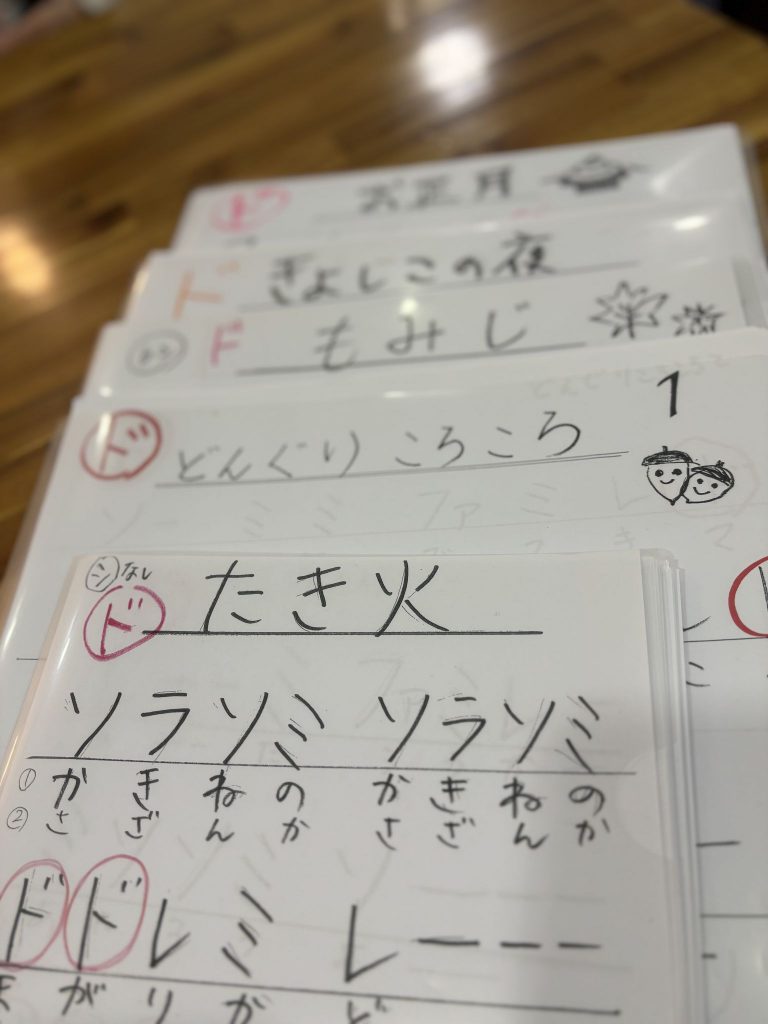 お正月
ド きよしこの夜
ド もみじ
1
ド どんぐりころころ
シ なし
ド たき火
ソラソミ ソラソミ
① かきねの かきねの
② さざんか さざんか
ドドレミレーーー
まがりかど